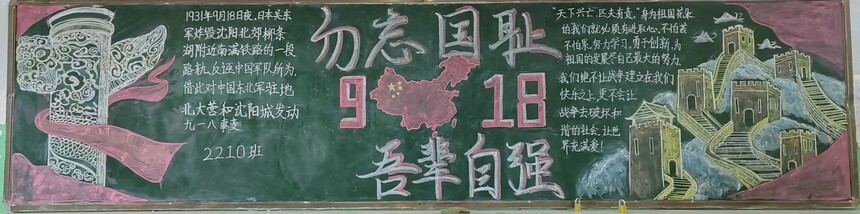 1931年9月18日夜,日本关东
军炸毁沈阳北郊柳条
湖附近南满铁路的一段
路轨,反诬中国军队所为,
借此对中国东北军驻地
北大营和沈阳城发动
九一八事变
2210班
勿忘国耻
9 18
吾辈自强
"天下兴亡,匹夫有责。"身为祖国花朵
的我们就必须有进取心,不怕苦
不怕累,努力学习,勇于创新,为
祖国的发展尽自己最大的努力。
我们绝不让战争建立在我们
快乐之上,更不会让
战争去破坏和
谐的社会,让世
界充满爱!